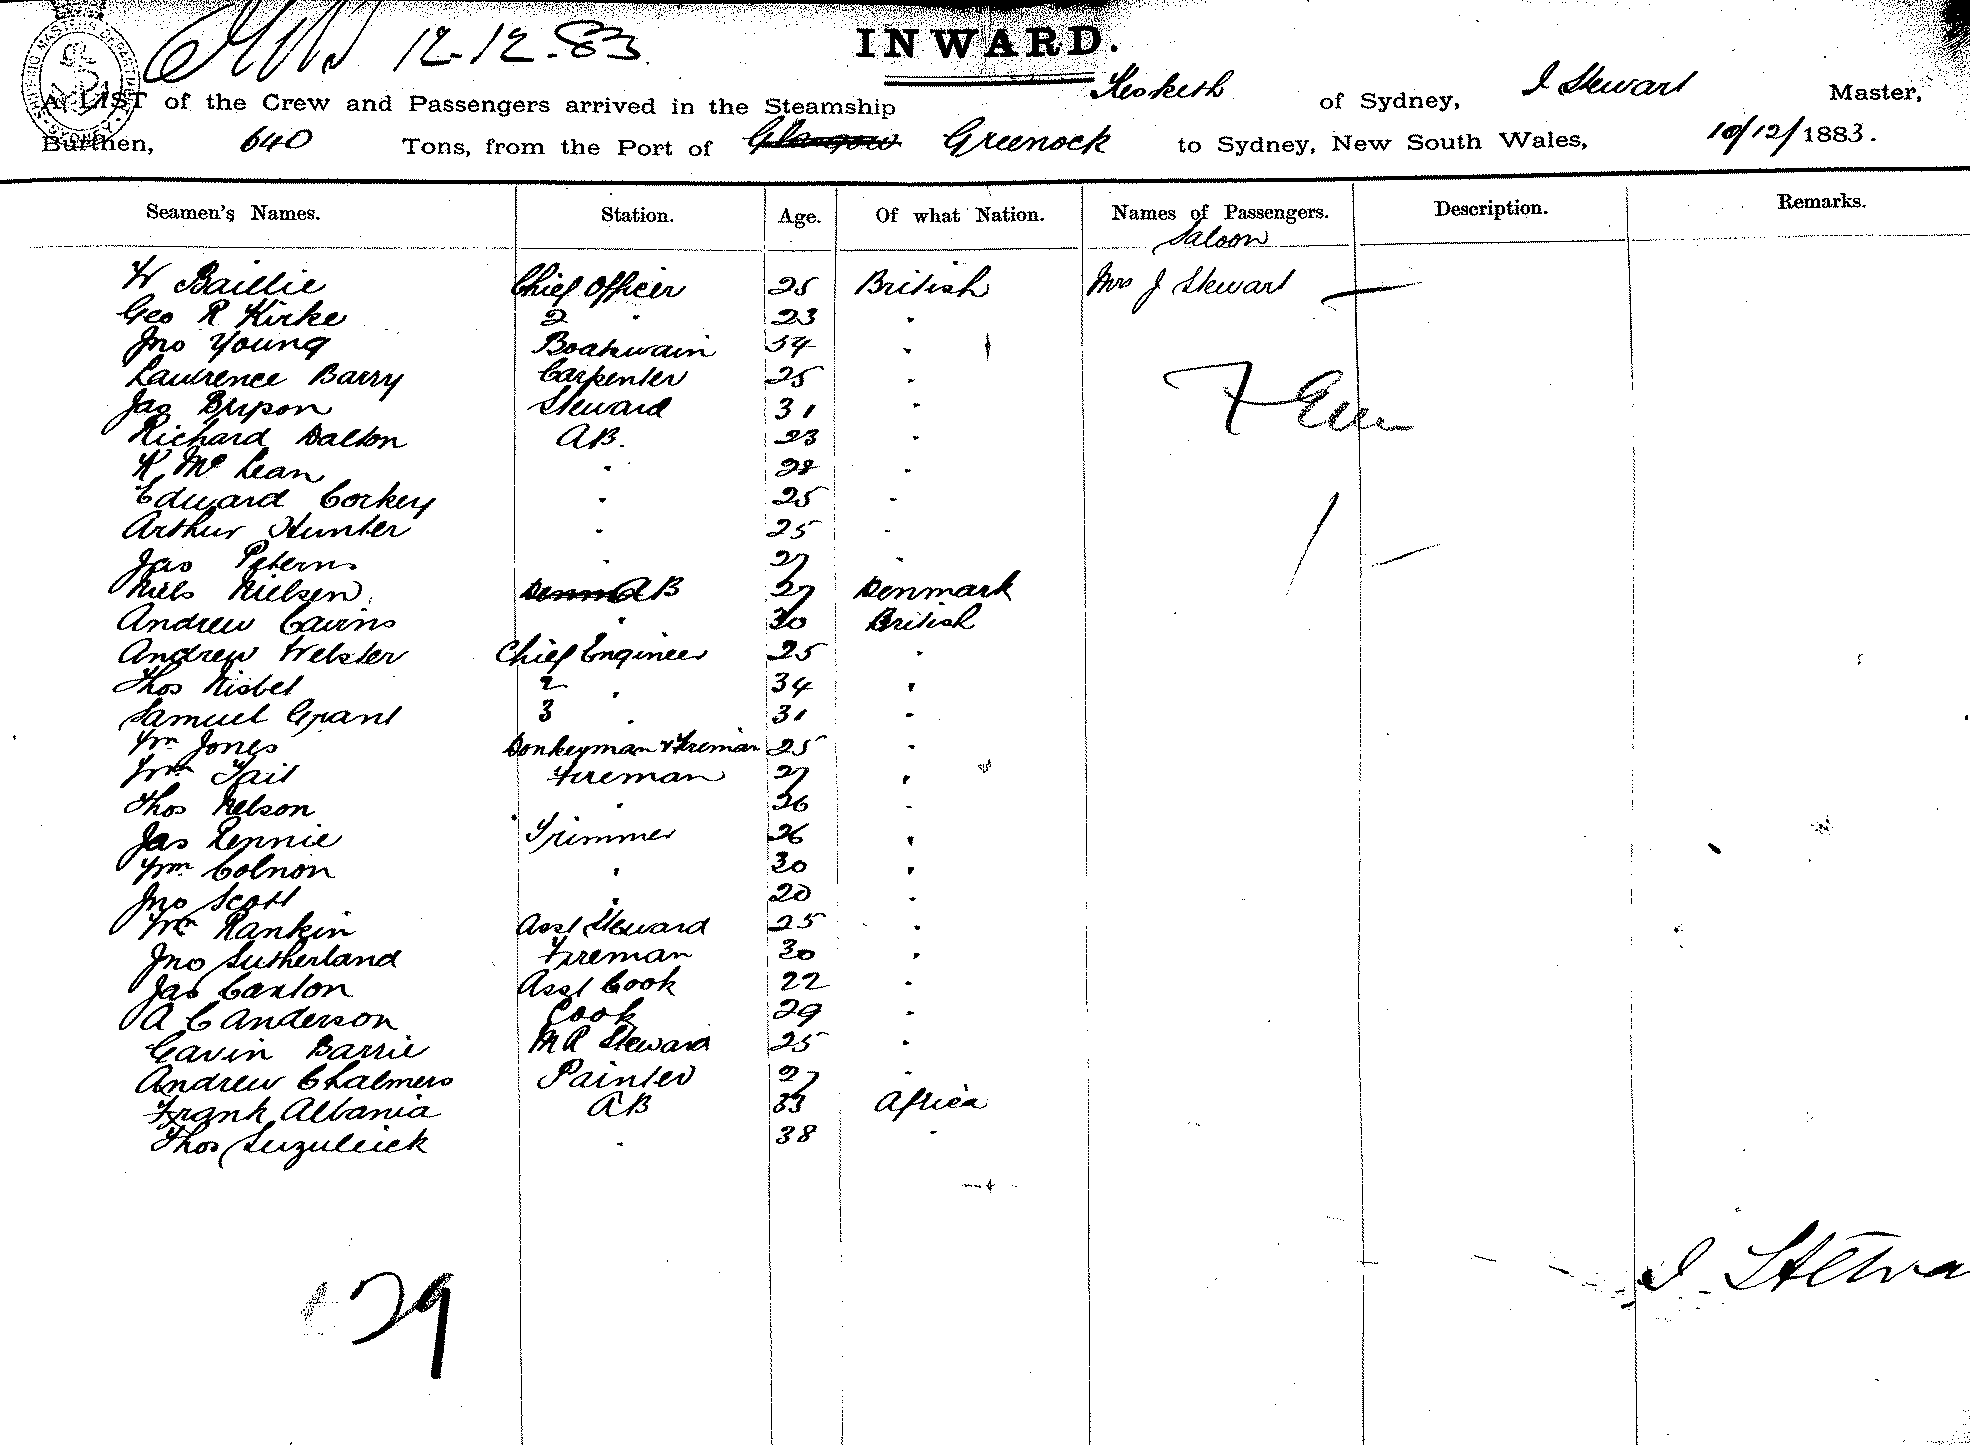 12-12-83
INWARD.
A LIST of the Crew and Passengers arrived in the Steamship Hesketh of Sydney, J Stewart Master,
Burthen, 640 Tons, from the Port of Glasgow Greenock to Sydney, New South Wales, 10/12/1883.
Seamen's Names. Station. Age. Of what Nation. Names of Passengers. Description. Remarks.
Saloon
W Baillie Chief Officer 25 British Mrs J Stewart —
Geo R Kirke 2 " 23 "
Jno Young Boatswain 54 "
Lawrence Barry Carpenter 25 "
Jas Steward 31 "
Richard Dalton AB. 23 "
K McLean " 28 "
Edward Corkey " 25 "
Arthur Hunter " 25 "
Jas Peterns " 27 "
Niels Nielsen AB 27 Denmark
Andrew Cairns " 30 British
Andrew Webster Chief Engineer 25 "
Thos Nisbet 2 " 34 "
Samuel Grant 3 " 31 "
Wm Jones Donkeyman & Fireman 25 "
Wm Tait Fireman 27 "
Thos Nelson " 26 "
Jas Rennie Trimmer 26 "
Wm Colnon " 30 "
Jno Scott " 20 "
Wm Rankin Asst Steward 25 "
Jno Sutherland Fireman 30 "
Jas Canton Asst Cook 22 "
A C Anderson Cook 29 "
Gavin Barrie MR Steward 25 "
Andrew Chalmers Painter 27 "
Frank Albania AB 33 Africa
Thos " 38 "
29